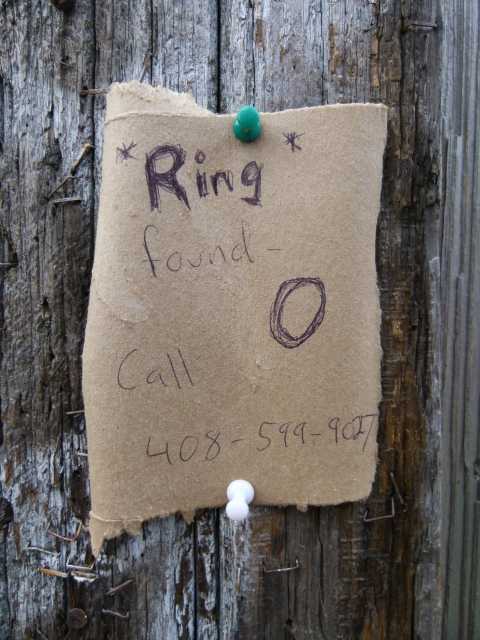 * Ring *
found -
Call
408-599-9027